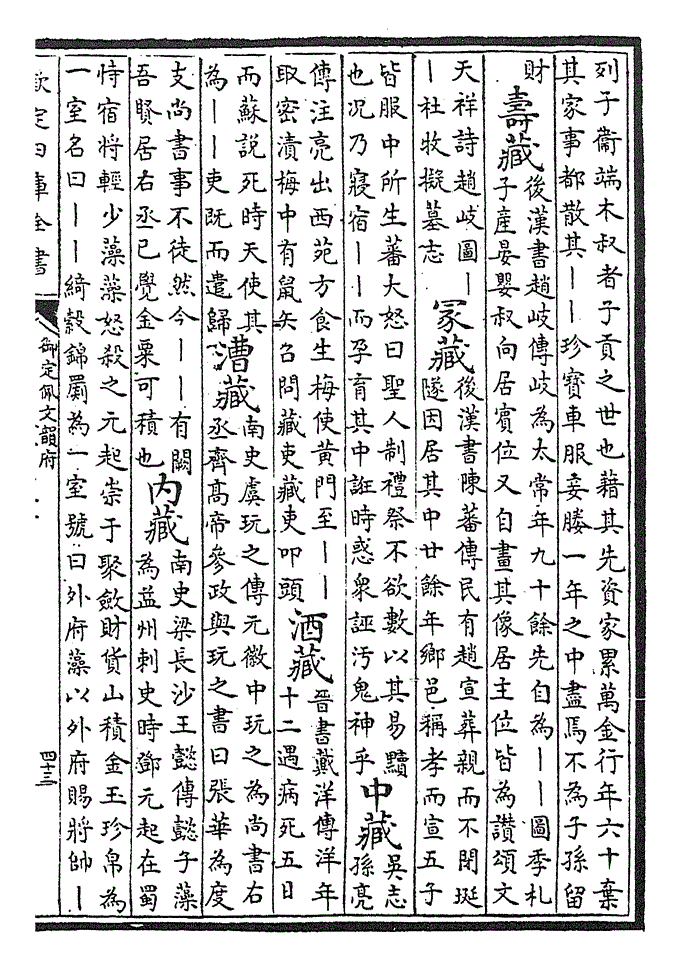 列子衞端木叔者子貢之世也藉其先資家累萬金行年六十棄
其家事都散其——珍寶車服妾媵一年之中盡焉不為子孫留
財
壽藏
後漢書趙岐傳岐為太常年九十餘先自為——圖季札
子產晏嬰叔向居賓位又自畫其像居主位皆為讚頌文
天祥詩趙岐圖—
—社牧擬墓志
冢藏
後漢書陳蕃傳民有趙宣葬親而不閉埏
隧因居其中廿餘年鄉邑稱孝而宣五子
皆服中所生蕃大怒曰聖人制禮祭不欲數以其易黷
也况乃寢宿——而孕育其中誑時惑衆誣汚鬼神乎
中藏
吳志
孫亮
傳注亮出西苑方食生梅使黄門至——
取密漬梅中有鼠矢召問藏吏藏吏叩頭
洒藏
晉書戴洋傳洋年
十二遇病死五日
而蘇說死時天使其
為——吏既而遣歸
漕藏
南史虞玩之傳元徽中玩之為尚書右
丞齊髙帝參政與玩之書曰張華為度
支尚書事不徒然今——有闕
吾賢居右丞已覺金粟可積也
内藏
南史梁長沙王懿傳懿子藻
為益州刺史時鄧元起在蜀
恃宿將輕少藻藻怒殺之元起崇于聚斂財貨山積金玉珍帛為
一室名曰——綺縠錦罽為一室號曰外府藻以外府賜將帥—
欽定四庫全書
御定佩文韻府
四十三